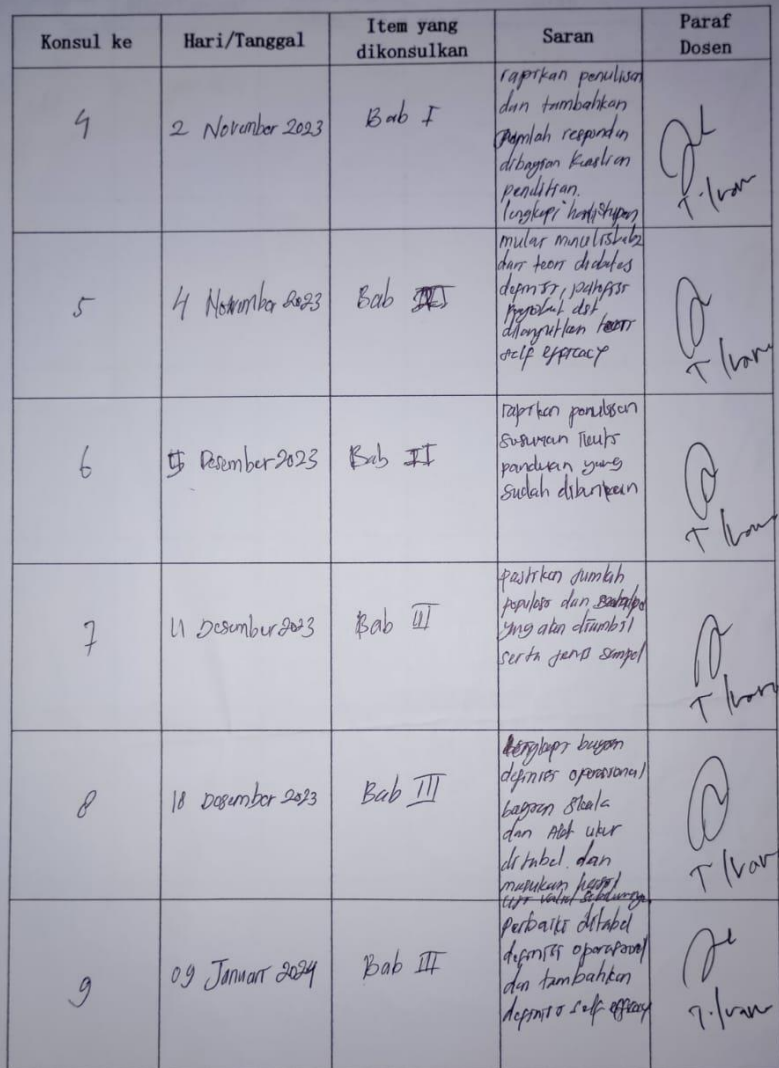 Konsul ke
Hari/Tanggal
Item yang
dikonsulkan
Saran
Paraf
Dosen
4
2 November 2023
Bab I
rapikan penulisan
dan tambahkan
jumlah responden
dibagian keaslian
penelitian.
lengkapi
5
4 November 2023
Bab II
mulai
dari teori diabetes
definisi,
dst
dilanjutkan teori
self efficacy
T. Ivan
6
5 Desember 2023
Bab II
rapikan penulisan
susunan
panduan yang
sudah diberikan
T. Ivan
7
11 Desember 2023
Bab III
pastikan jumlah
populasi dan
yng akan diambil
serta jenis sampel
T. Ivan
8
18 Desember 2023
Bab III
lengkapi bagian
definisi operasional
bagian skala
dan Alat ukur
di tabel dan
masukan hasil
uji valid sebelumnya
T. Ivan
9
09 Januari 2024
Bab III
Perbaiki ditabel
definisi operasional
dan tambahkan
definisi self efficacy
T. Ivan